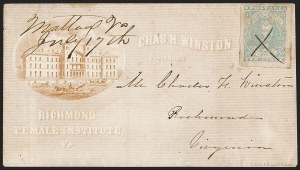 Mattoax Va
July 17th
CHAS. H. WINSTON
RICHMOND
FEMALE INSTITUTE,
VA
Mr Charles H. Winston
Richmond
Virginia